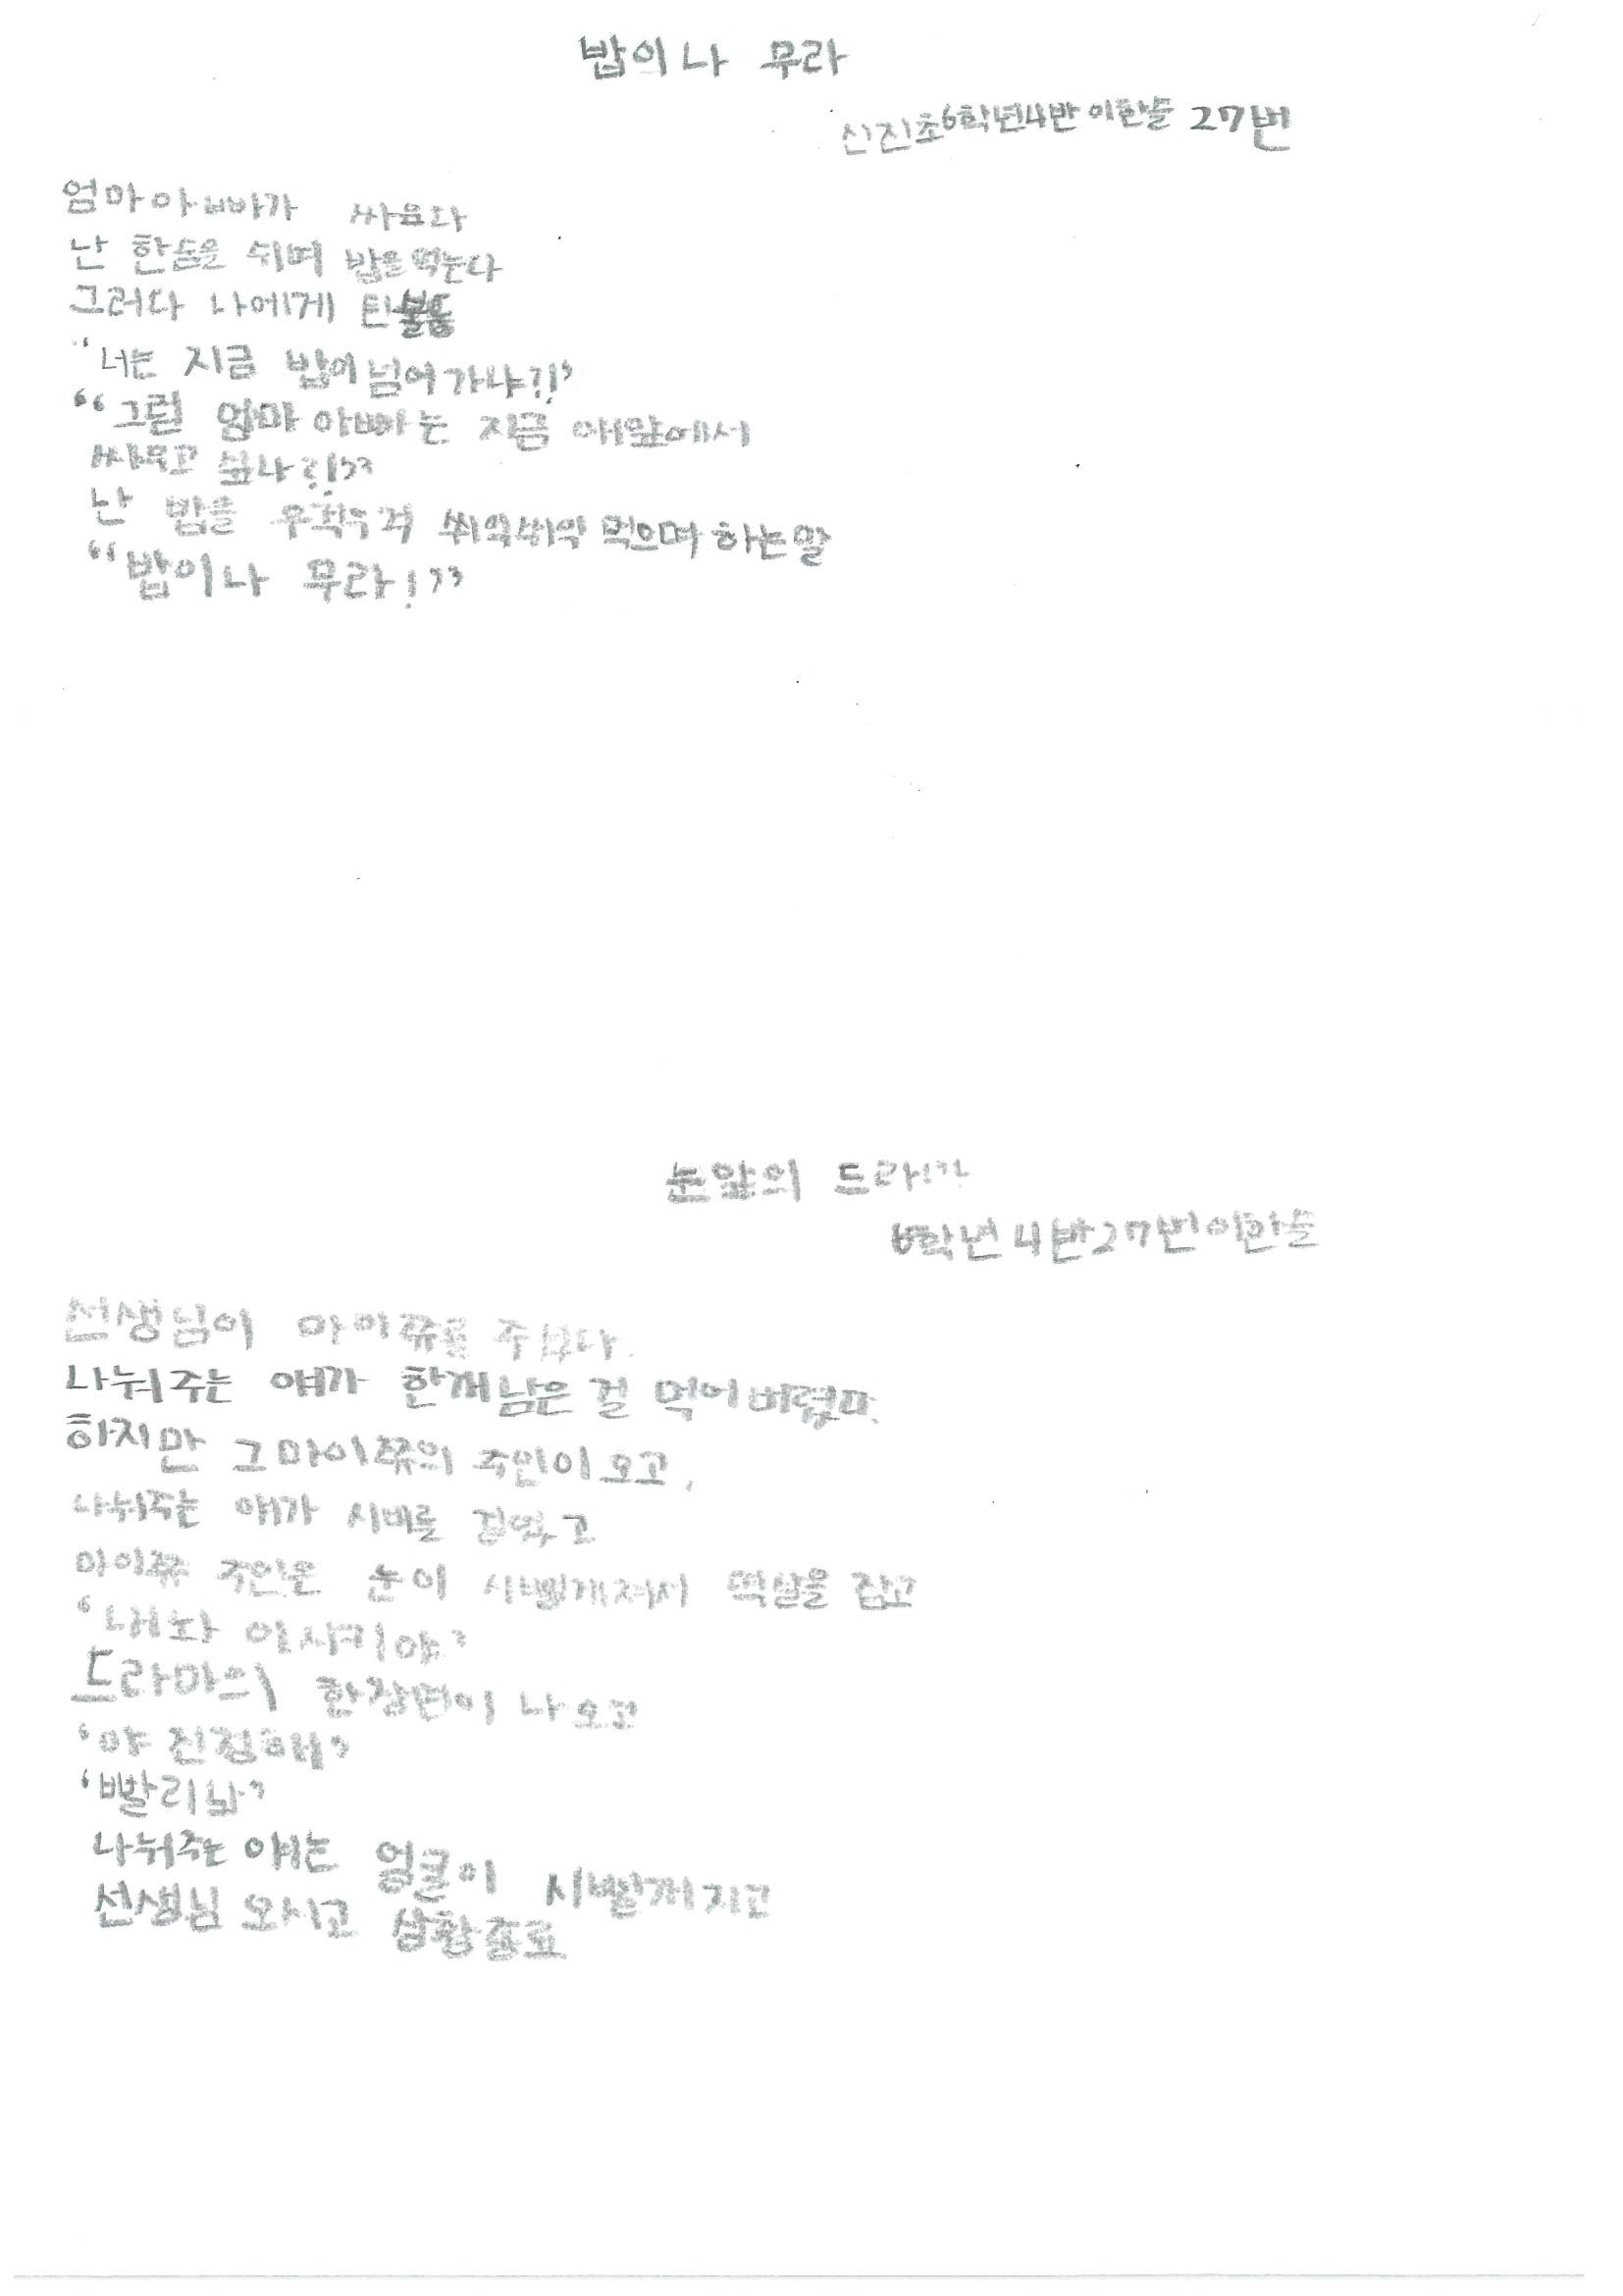 밥이나 무라
신진초6학년4반 이한솔 27번
엄마아빠가 싸운다
난 한숨을 쉬며 밥을 먹는다
그러다 나에게 튄 불똥
"너는 지금 밥이 넘어가냐?!"
"그럼 엄마 아빠는 지금 애앞에서
싸우고 싶나?!"
난 밥을 우적우적 쒸익쒸익 먹으며 하는말
"밥이나 무라!"
눈앞의 드라마
6학년 4반 27번 이한솔
선생님이 마이쮸를 주셨다.
나눠주는 얘가 한개남은 걸 먹어버렸다.
하지만 그마이쮸의 주인이 오고,
나눠주는 얘가 시비를 걸었고
마이쮸 주인은 눈이 시뻘개져서 멱살을 잡고
'내놔 이 새끼야'
드라마의 한장면이 나오고
'야 진정해'
'빨리 놔'
나눠주는 얘는 얼굴이 시뻘개지고
선생님 오시고 상황종료